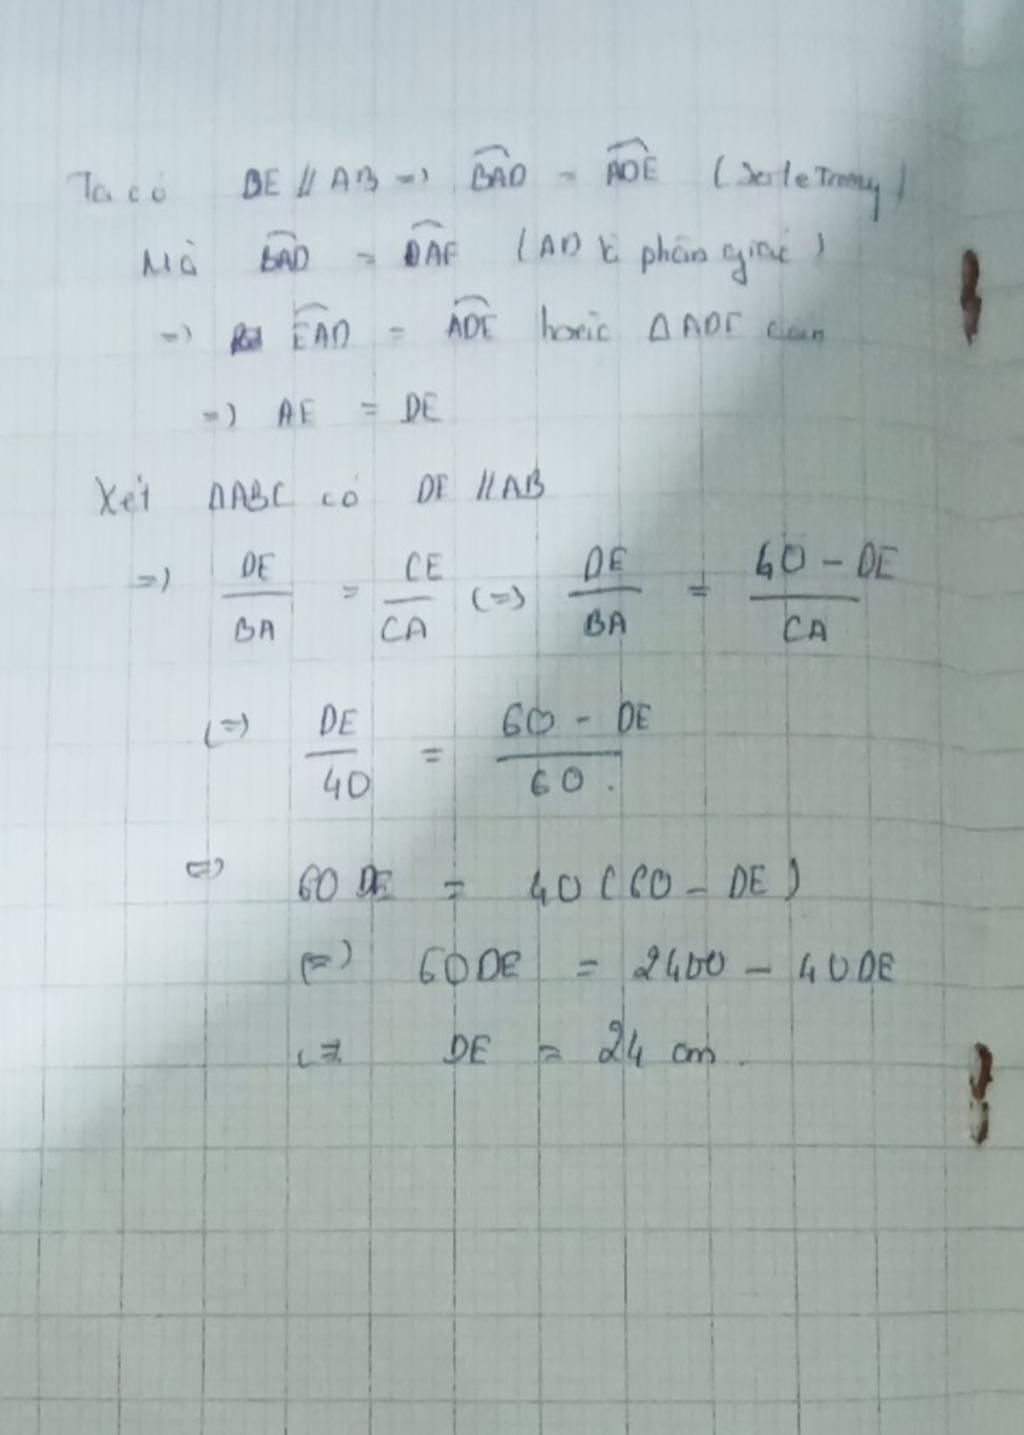 Ta có DE // AB => BAD = ADE (so le Trong)
Mà BAD = DAE (AD là phân giác)
=> EAD = ADE hoặc Δ ADE cân
=> AE = DE
Xét ΔABC có DE // AB
=> DE/BA = CE/CA (=) DE/BA = 60 - DE/CA
(=) DE/40 = 60 - DE/60.
(=) 60 DE = 40 (60 - DE)
(=) 60DE = 2400 - 40DE
(=) DE = 24 cm.